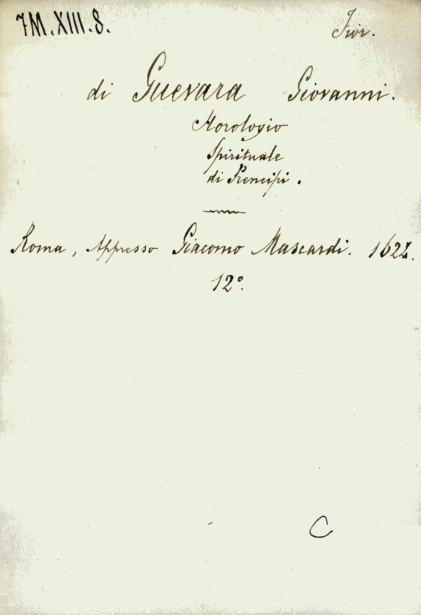 7M.XIII.8.
Fior.
di Guevara Giovanni.
Horologio
Spirituale
di Prencipi.
Roma, Appresso Giacomo Mascardi. 1622.
12°.
C